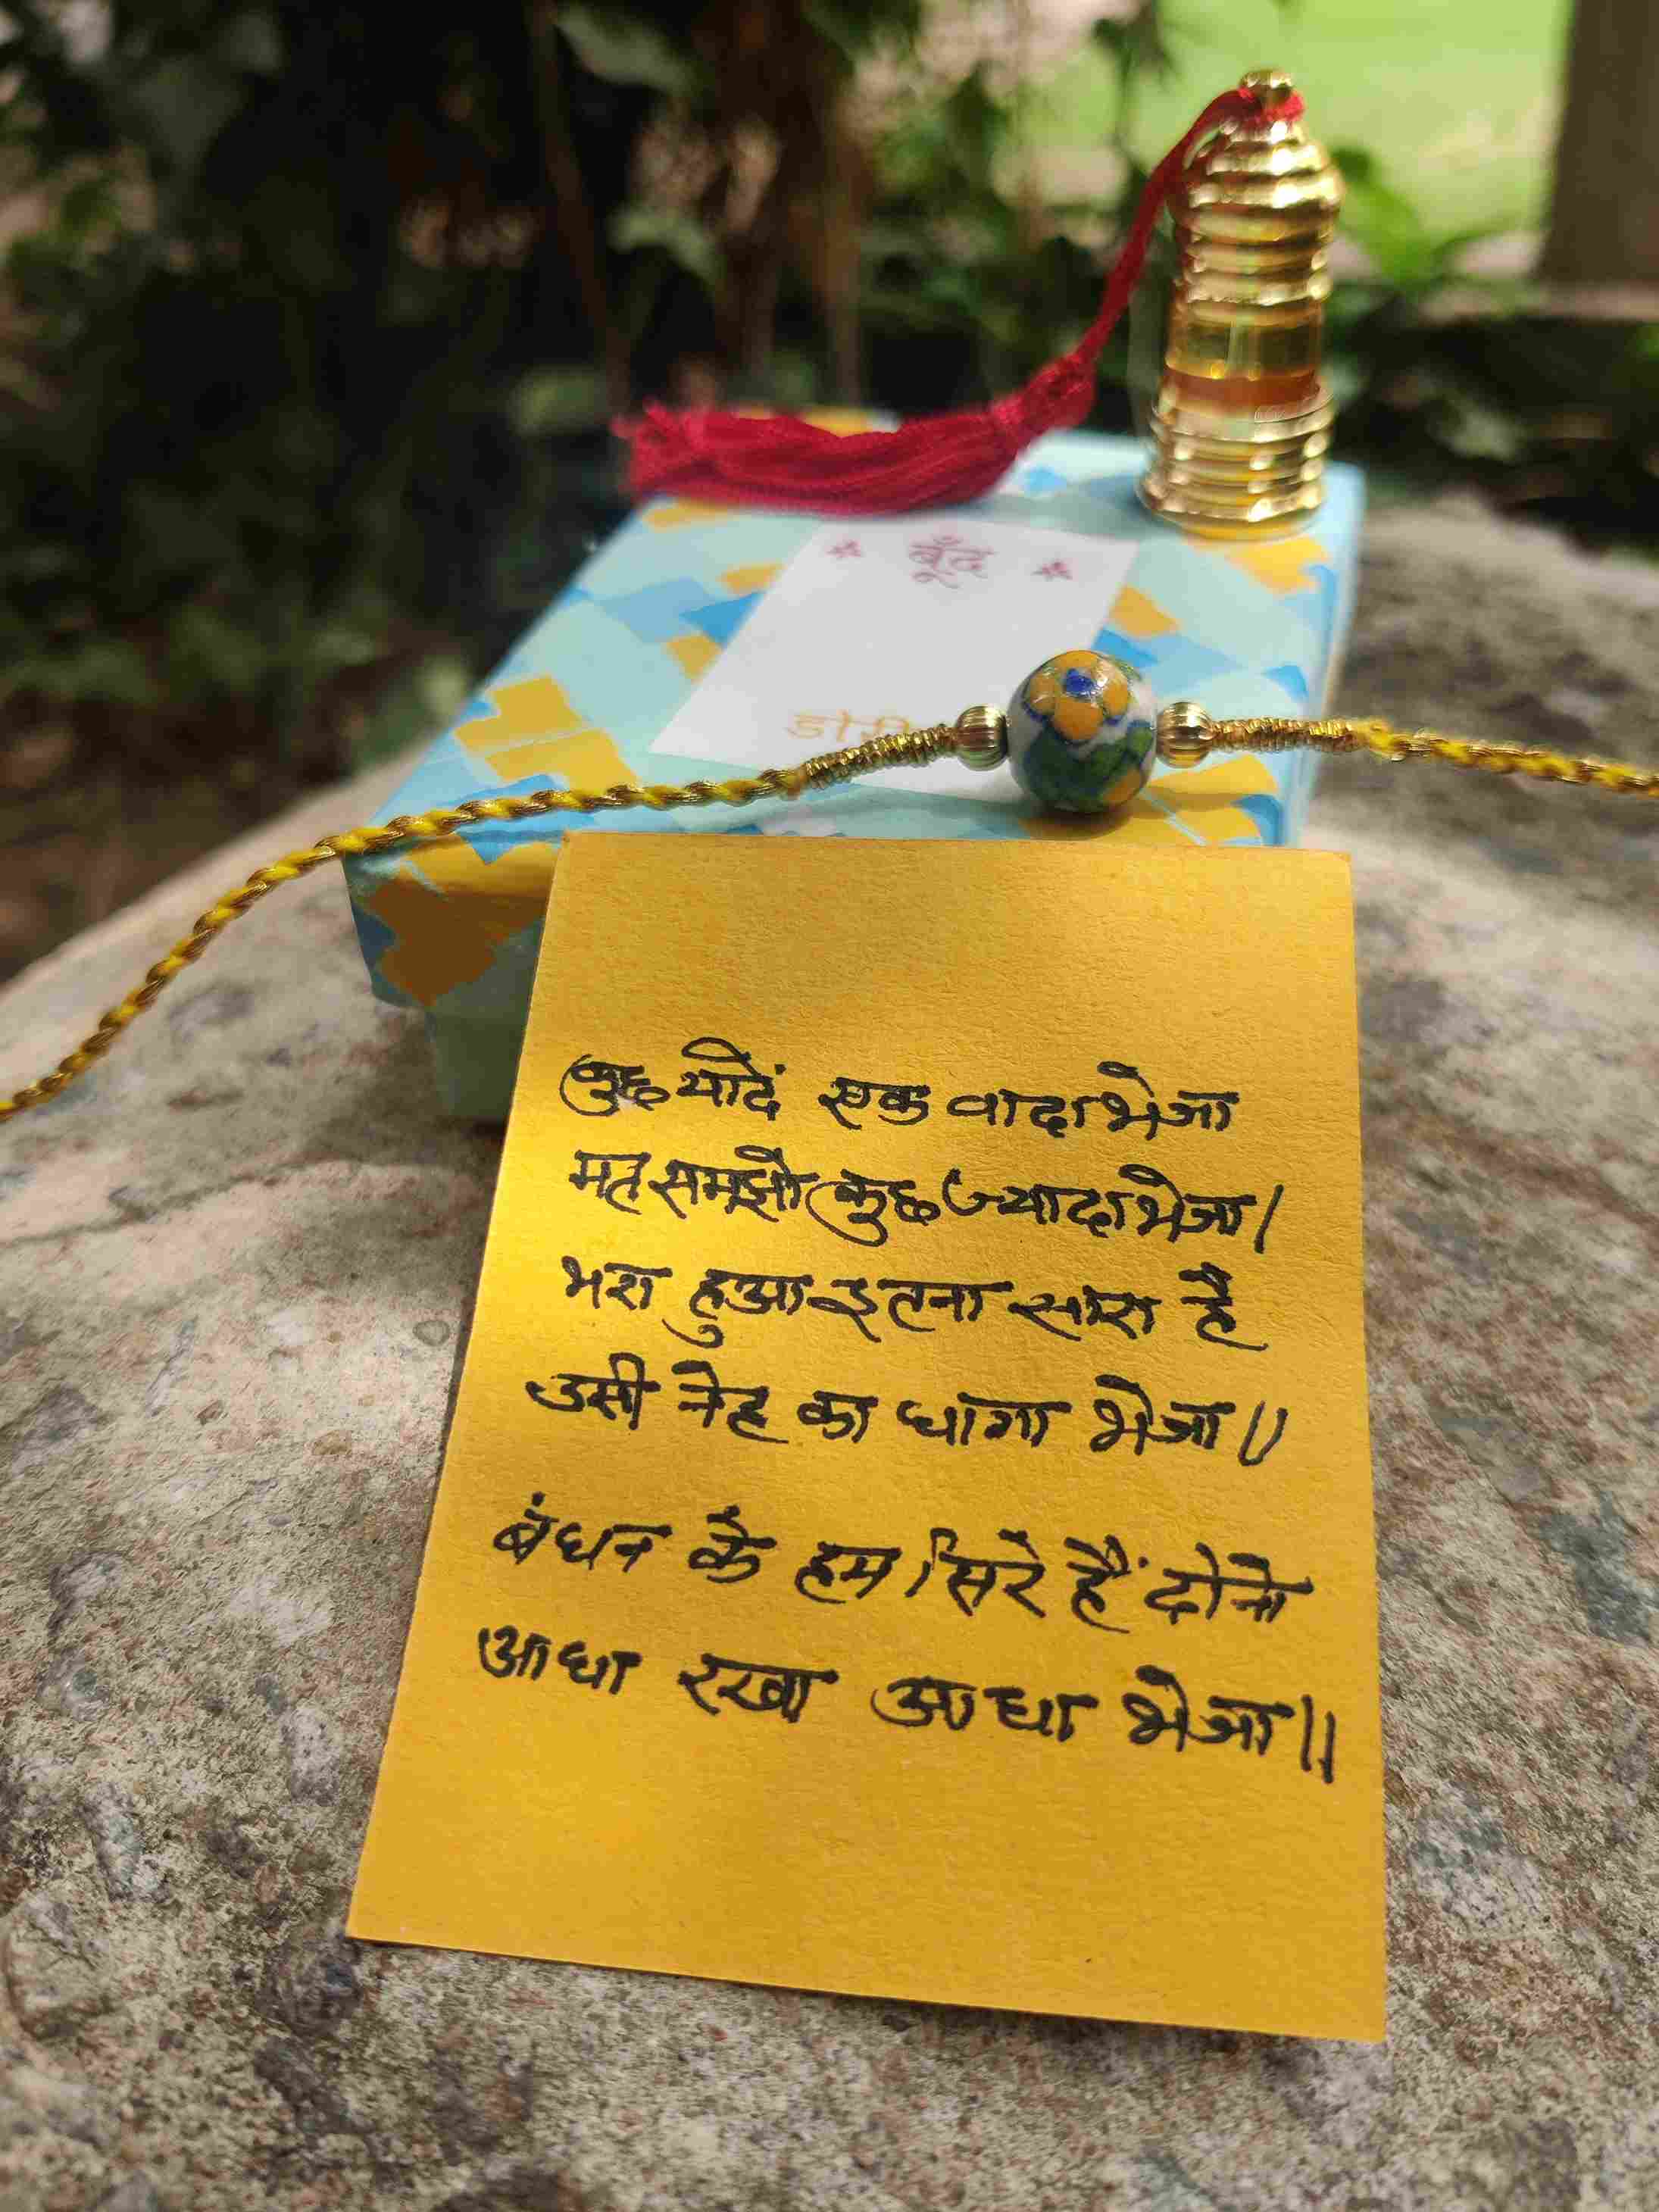 बूँद
कुछ यादें एक वादा भेजा
मत समझो कुछ ज्यादा भेजा।
भरा हुआ इतना सारा है
उसी नेह का धागा भेजा॥
बंधन के हम सिरे हैं दोनो
आधा रखा आधा भेजा॥